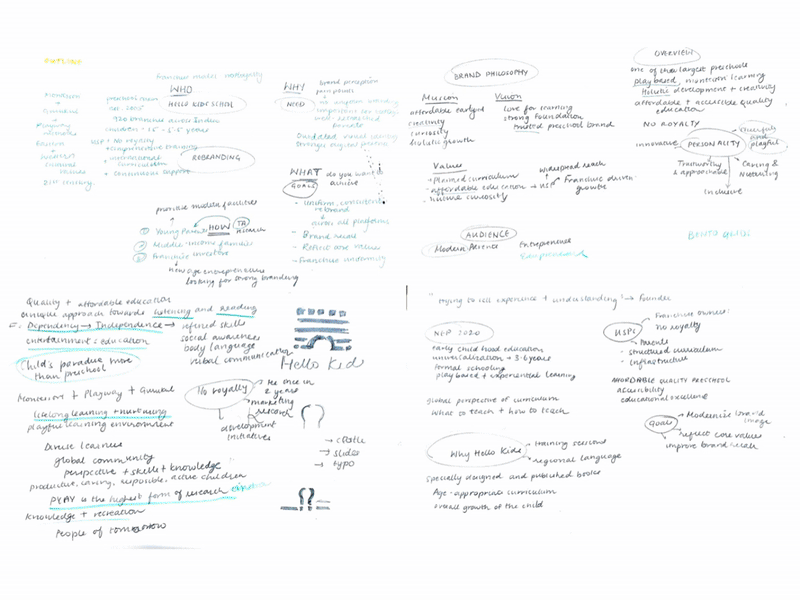 OUTLINE
franchise model
WHO
preschool
est. 2005
HELLO KIDS SCHOOL
920 branches across India
children - 1.5 - 5.5 years
USP + No royalty
+ comprehensive training
+ international curriculum
+ continuous support
REBRANDING
Montessori
+
Gurukul
+
Playway
21st century
WHY
brand perception
NEED
Outdated visual identity
WHAT do you want to achieve
GOALS
- Uniform, consistent rebrand
across all platforms
- Brand recall
- Reflect core values
- Franchise uniformity
families
HOW
TA
research
① Young Parents
② Middle-income families
③ Franchise investors
new age entrepreneurs
looking for strong branding
BRAND PHILOSOPHY
Mission
affordable
creativity
curiosity
holistic growth
Vision
love for learning
strong foundation
trusted preschool brand
Values
- Planned curriculum
- affordable education → USP
- nurture curiosity
widespread reach
Franchise driven growth
AUDIENCE
Modern Parents
Entrepreneurs
OVERVIEW
one of India's largest preschools
play based, montessori learning
Holistic development + creativity
affordable + accessible quality education
NO ROYALTY
innovative
PERSONALITY
cheerful and playful
Trustworthy & approachable
Caring & Nurturing
Inclusive
BENTO GRIDS
Quality + affordable education
unique approach towards listening and reading
Dependency → Independence → refined skills
entertainment = education
social awareness
body language
verbal communication
Child's paradise more than preschool
Montessori + Playway + Gurukul
lifelong learning + nurturing
playful learning environment
Diverse learners
global community
perspective + skills + knowledge
productive, caring, responsible, active children
PLAY is the highest form of research
Knowledge + recreation
People of tomorrow
No royalty
marketing
research
development initiatives
Hello Kid
→ castle
→ slides
→ typo
"trying to sell experience + understanding" → Founder
NEP 2020
early child hood education
universalisation → 3-6 years
formal schooling
play based + experiential learning
global perspective of curriculum
What to teach + how to teach
Why Hello Kids
training sessions
regional language
specially designed and published books
Age-appropriate curriculum
overall growth of the child
USPs
Franchise owners:
no royalty
Parents
- structured curriculum
- infrastructure
AFFORDABLE QUALITY PRESCHOOL
accessibility
educational excellence
Goals
Modernise brand image
reflect core values
improve brand recall